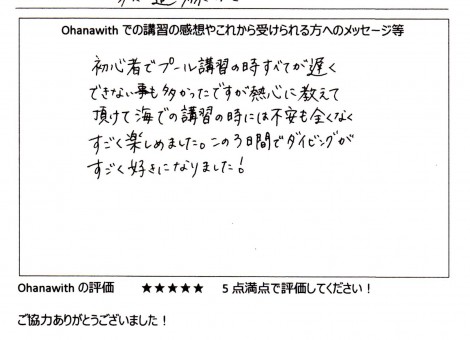 Ohanawith での講習の感想やこれから受けられる方へのメッセージ等
初心者でプール講習の時すべてが遅く
できない事も多かったですが熱心に教えて
頂けて海での講習の時には不安も全くなく
すごく楽しめました。この3日間でダイビングが
すごく好きになりました!
Ohanawith の評価 ★★★★★ 5 点満点で評価してください!
ご協力ありがとうございました!